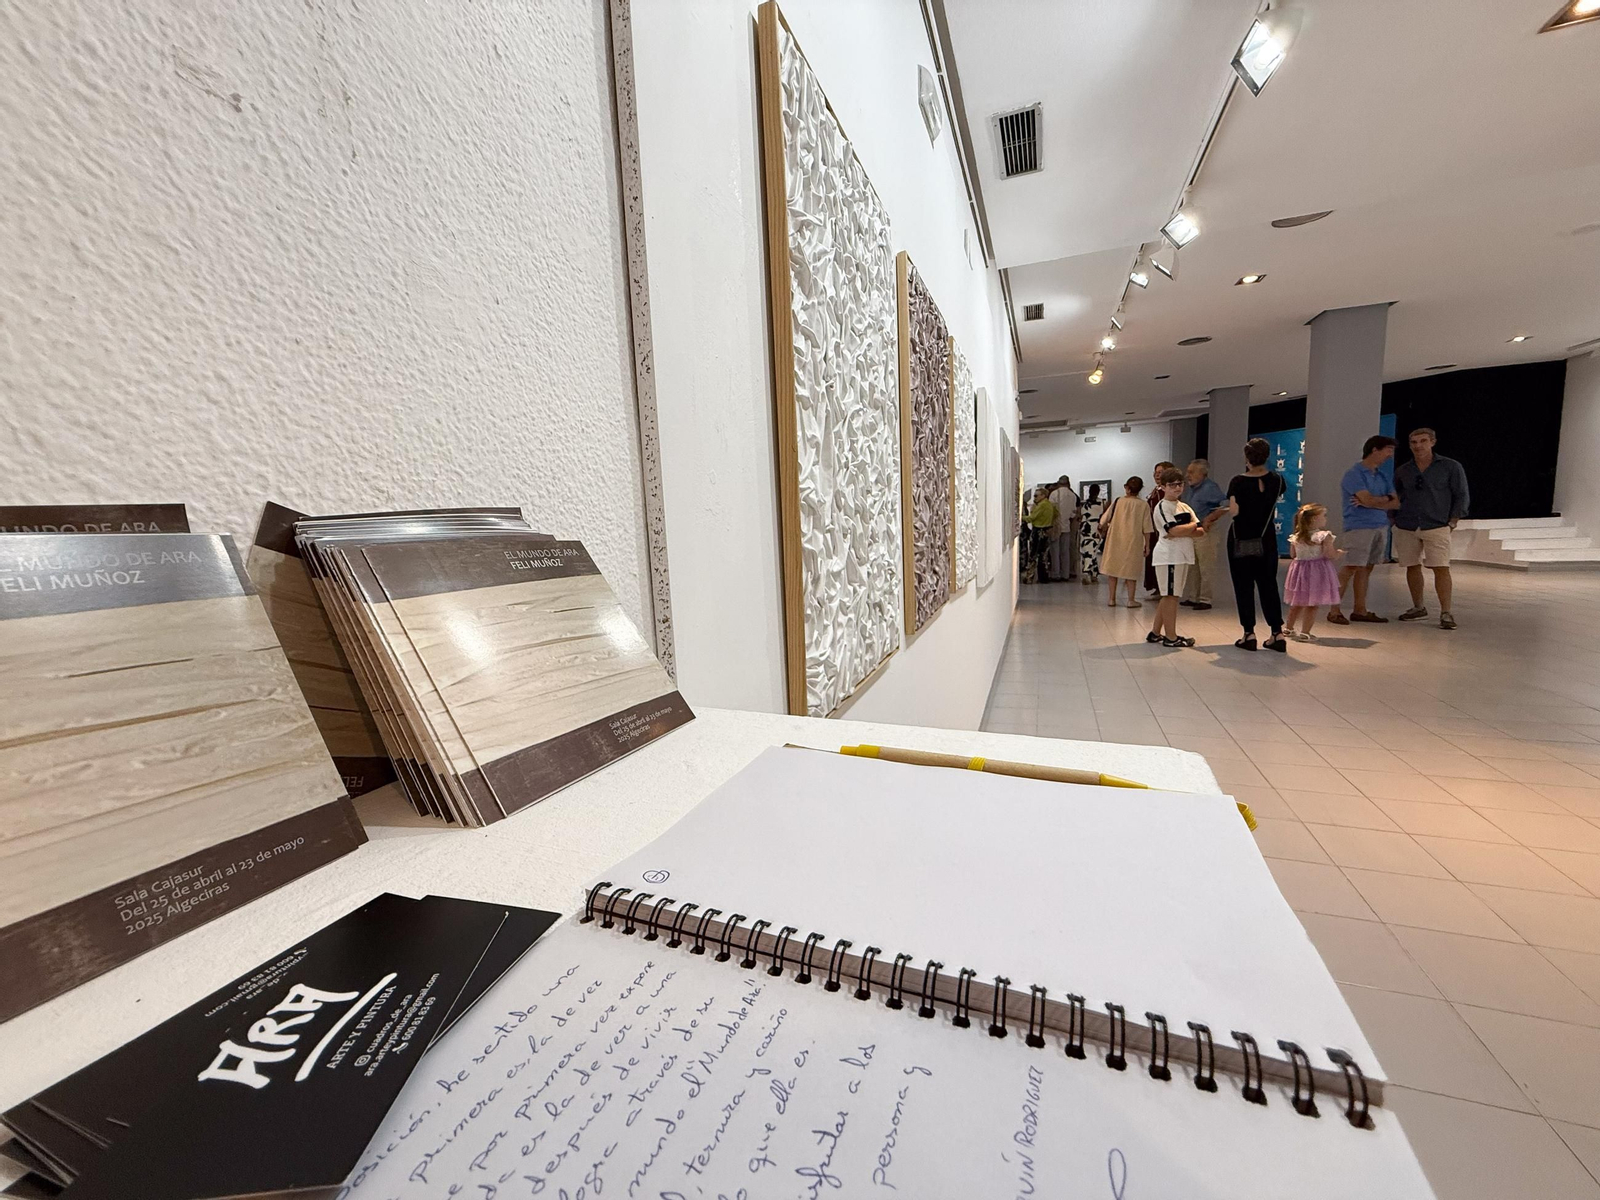 UNDO DE ARA
EL MUNDO DE ARA
FELI MUÑOZ
Sala Cajasur
Del 25 de abril al 23 de mayo
2025 Algeciras
EL MUNDO DE ARA
FELI MUÑOZ
Sala Cajasur
Del 25 de abril al 23 de mayo
2025 Algeciras
FEL
ARA
ARTE Y PINTURA
cuadros_de_ara
ara.arteypintura@gmail.com
600 81 83 69
600 81 83 69
posición, he sentido una
primera es, la de ver
e por primera vez expone
da es la de ver a una
después de vivir
logra através de su
mundo el "Mundo de Ara"!!
, ternura y cariño
lo que ella es.
isfrutar a los
persona y
QUÍN RODRÍGUEZ